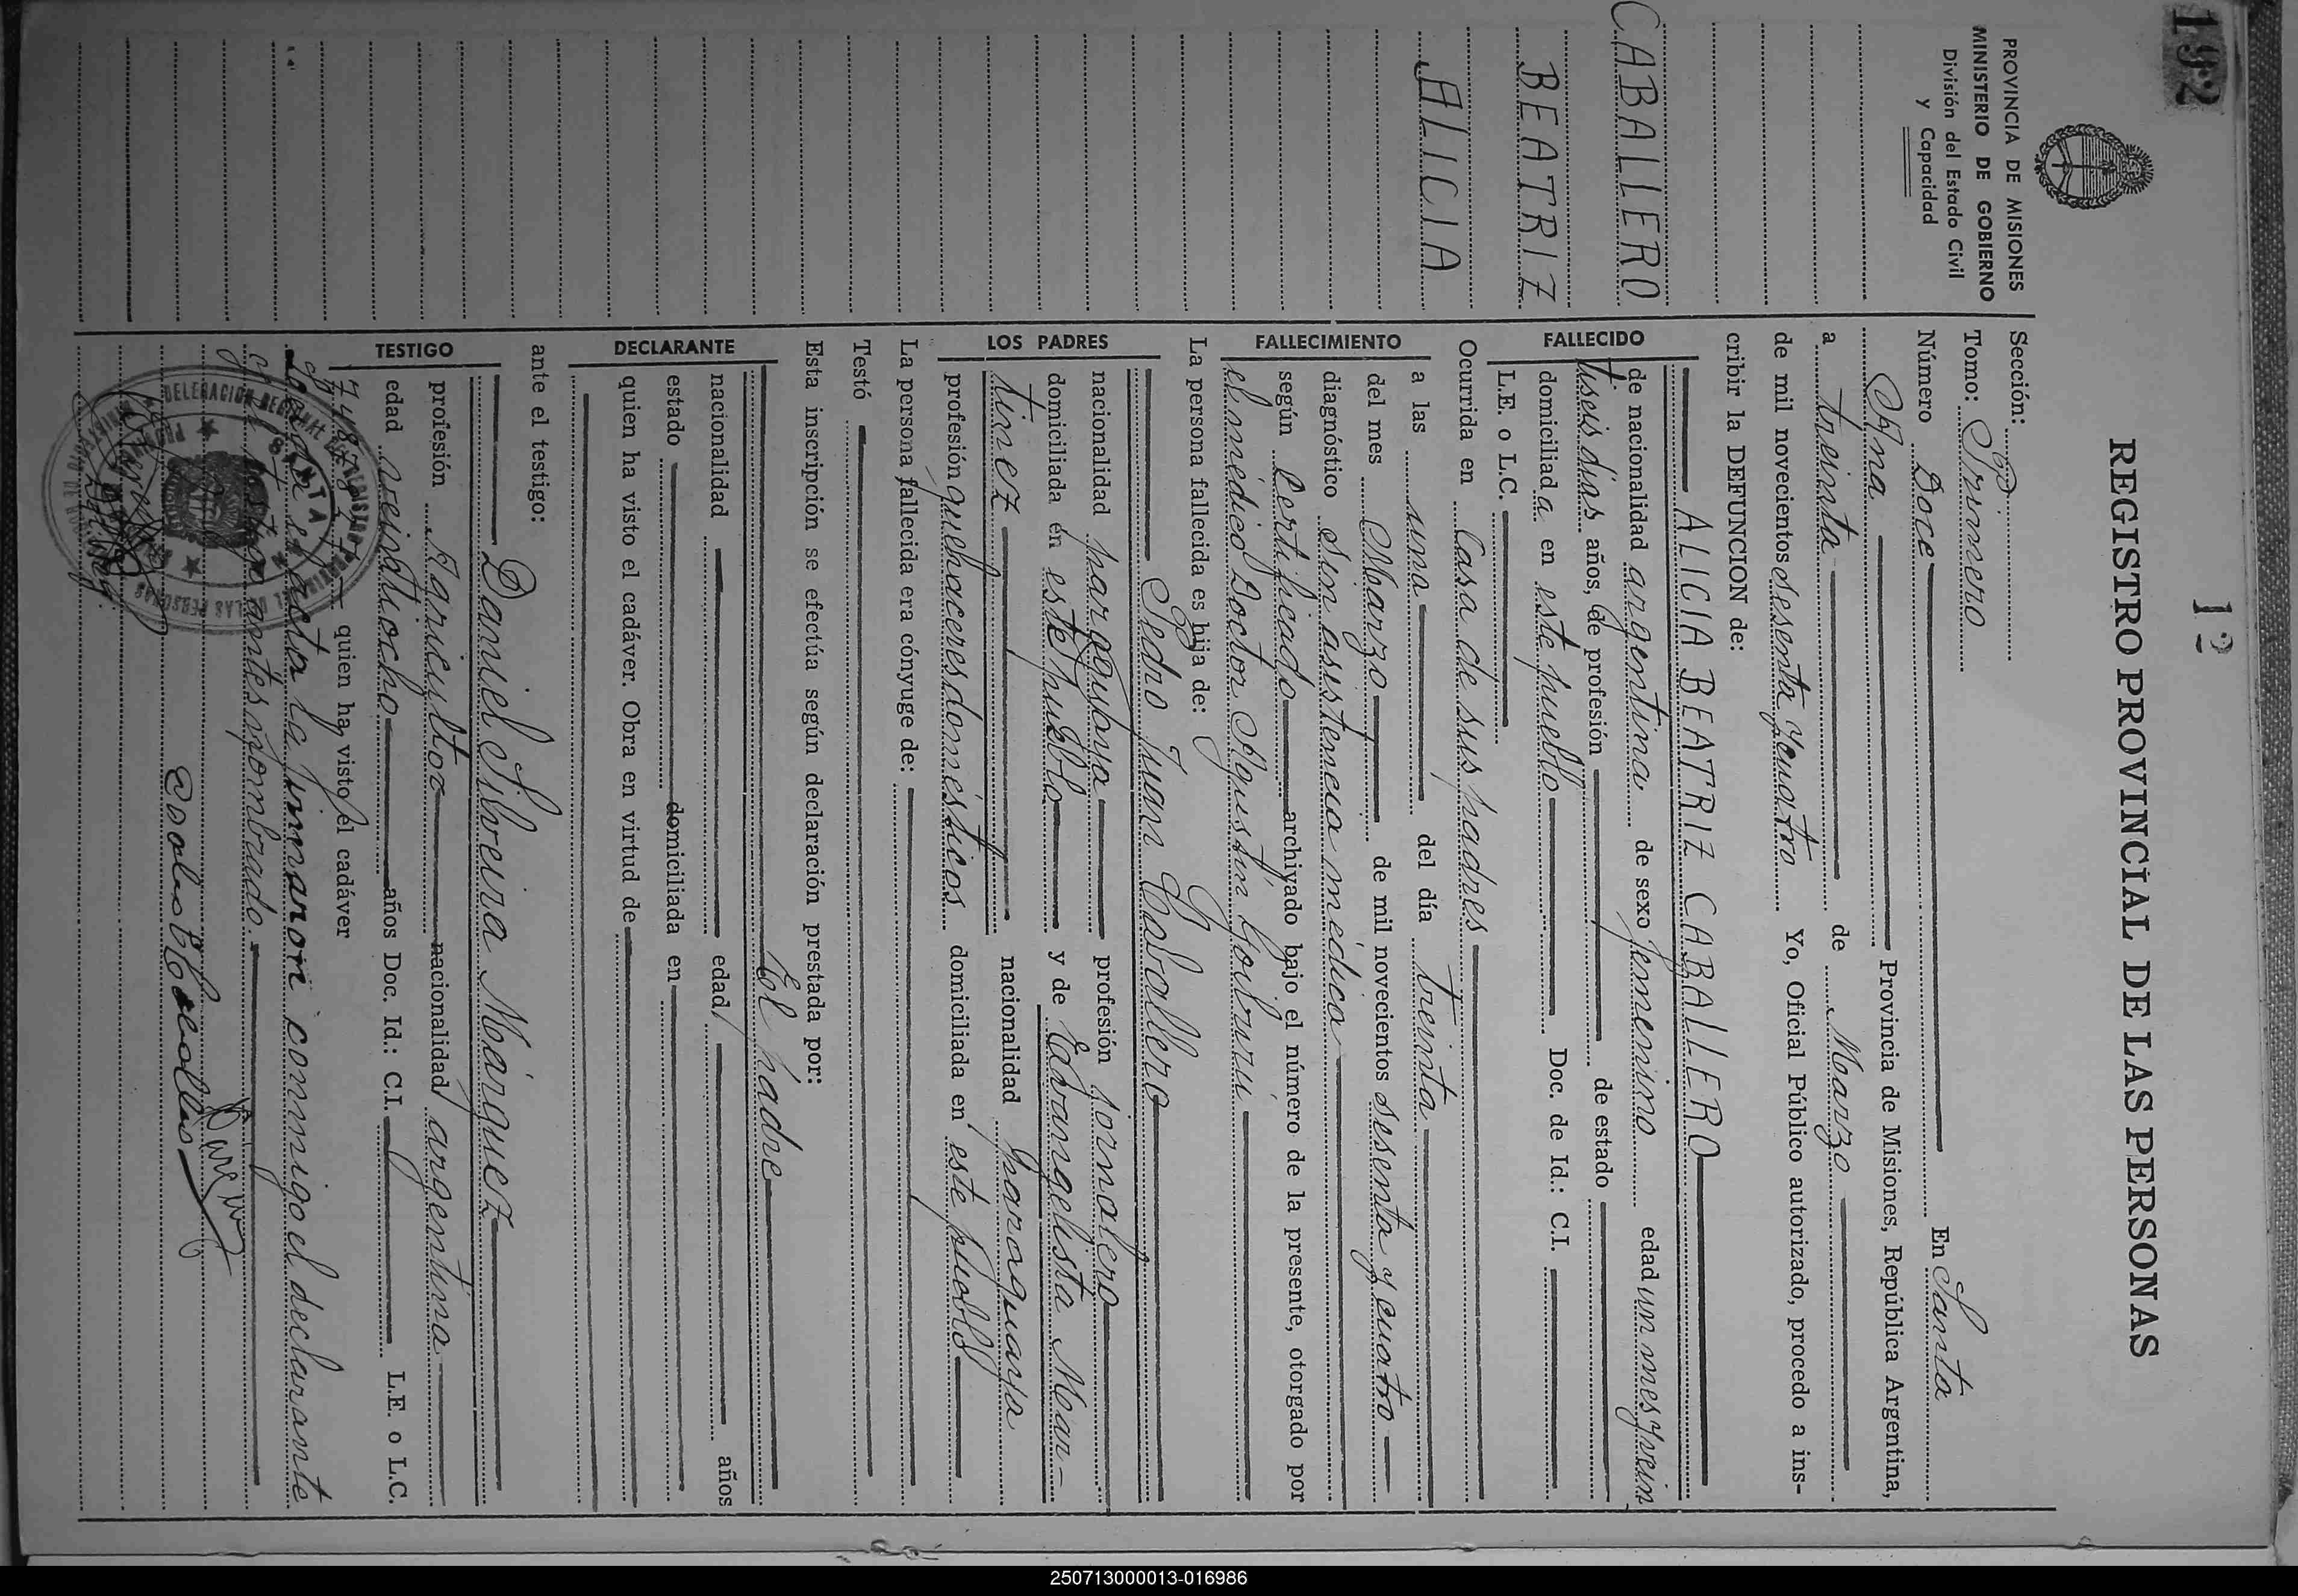 192
12
REGISTRO PROVINCIAL DE LAS PERSONAS
PROVINCIA DE MISIONES
MINISTERIO DE GOBIERNO
División del Estado Civil
y Capacidad
CABALLERO
BEATRIZ
ALICIA
Sección:
Tomo: Primero
Número Doce En Santa
Ana Provincia de Misiones, República Argentina,
a treinta de Marzo
de mil novecientos sesenta y cuatro Yo, Oficial Público autorizado, procedo a ins-
cribir la DEFUNCION de:
ALICIA BEATRIZ CABALLERO
FALLECIDO
de nacionalidad argentina de sexo femenino edad un mes y vein
tiseis días años, de profesión de estado
domiciliada en este pueblo Doc. de Id.: C.I.
L.E. o L.C.
FALLECIMIENTO
Ocurrida en Casa de sus padres
a las una del día treinta
del mes Marzo de mil novecientos sesenta y cuatro
diagnóstico sin asistencia médica
según Certificado archivado bajo el número de la presente, otorgado por
el médico Doctor Agustín Goiburu
La persona fallecida es hija de:
LOS PADRES
Pedro Juan Caballero
nacionalidad paraguaya profesión jornalero
domiciliada en este pueblo y de Evangelista Mar-
tinez nacionalidad paraguaya
profesión quehaceres domésticos domiciliada en este pueblo
La persona fallecida era cónyuge de:
Testó
Esta inscripción se efectúa según declaración prestada por:
DECLARANTE
El padre
nacionalidad edad años
estado domiciliada en
quien ha visto el cadáver. Obra en virtud de
ante el testigo:
TESTIGO
Daniel Silveira Márquez
profesión Agricultor nacionalidad argentina
edad veintiocho años Doc. Id.: C.I. L.E. o L.C.
quien ha visto el cadáver
Leída el acta la firmaron conmigo el declarante
y el testigo antes nombrado.
SANTA
250713000013-016986